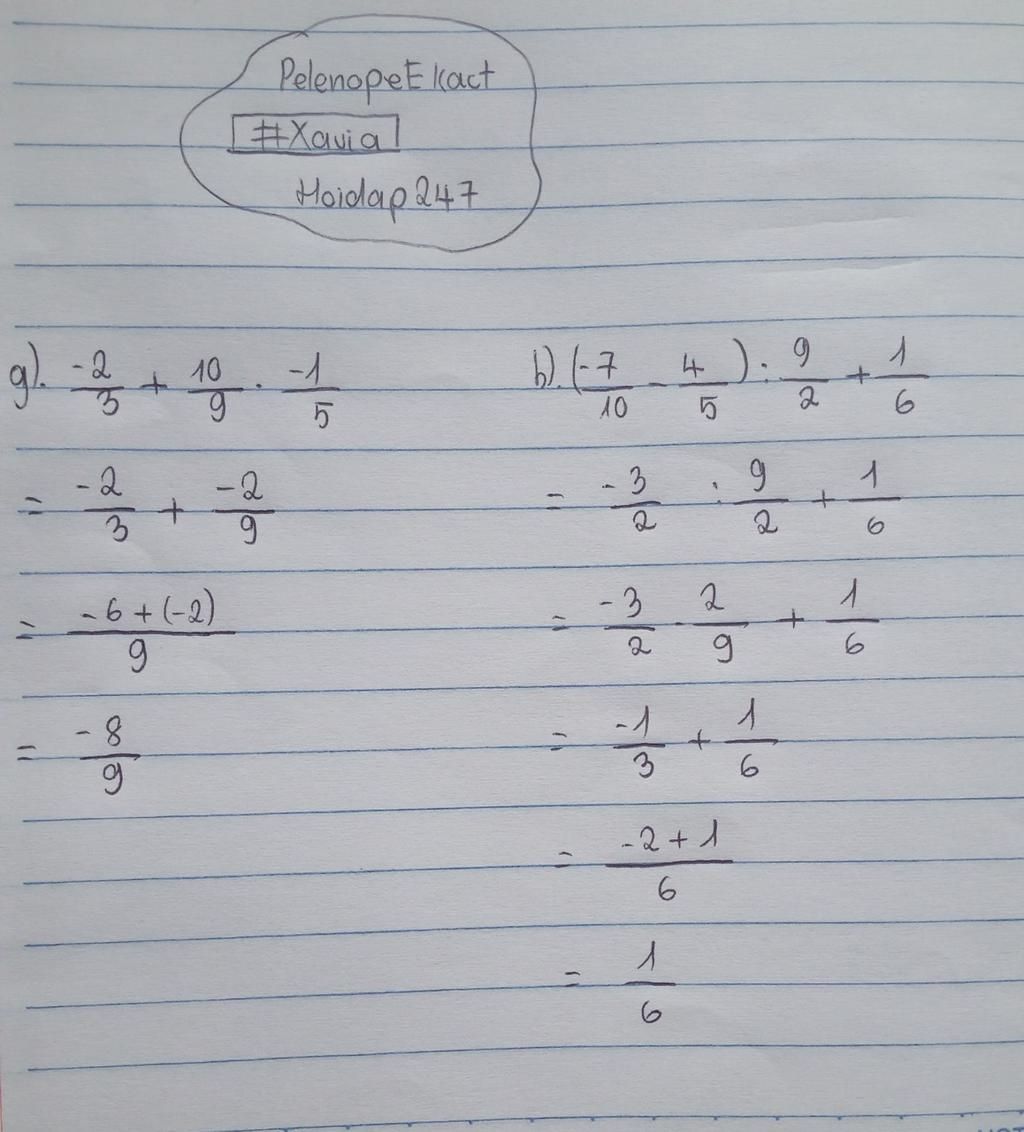 PelenopeEkact
#Xavia
Hoidap247
g). -2/3 + 10/9 . -1/5
= -2/3 + -2/9
= -6+(-2)/9
= -8/9
h). (-7/10 - 4/5) : 9/2 + 1/6
= -3/2 : 9/2 + 1/6
= -3/2 . 2/9 + 1/6
= -1/3 + 1/6
= -2+1/6
= 1/6